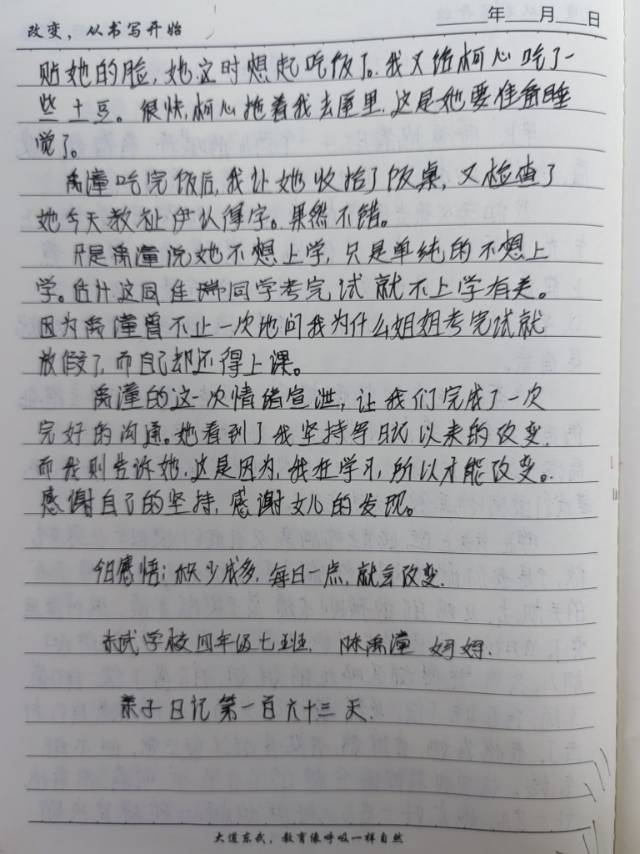 改变，从书写开始 年 月 日
贴她的脸，她这时想起吃饭了。我又给柯心吃了一
些土豆。很快，柯心拖着我去屋里，这是她要准备睡
觉了。
禹潼吃完饭后，我让她收拾了饭桌，又检查了
她今天教祉伊认得字。果然不错。
只是禹潼说她不想上学，只是单纯的不想上
学。估计这同佳琳同学考完试就不上学有关。
因为禹潼曾不止一次地问我为什么姐姐考完试就
放假了，而自己却还得上课。
禹潼的这一次情绪宣泄，让我们完成了一次
完好的沟通。她看到了我坚持写日记以来的改变，
而我则告诉她，这是因为，我在学习，所以才能改变。
感谢自己的坚持，感谢女儿的发现。
今日感悟：积少成多，每日一点，就会改变.
东武学校四年级七班. 陈禹潼 妈妈.
亲子日记第一百六十三天.
大道东武，教育像呼吸一样自然